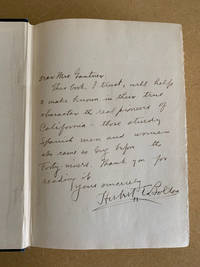 Dear Mrs.
This book, I trust, will help
to make known in their true
character the real pioneers of
California - those sturdy
Spanish men and women
who came so long before the
Forty niners. Thank you for
reading it
Yours sincerely
Herbert E. Bolton